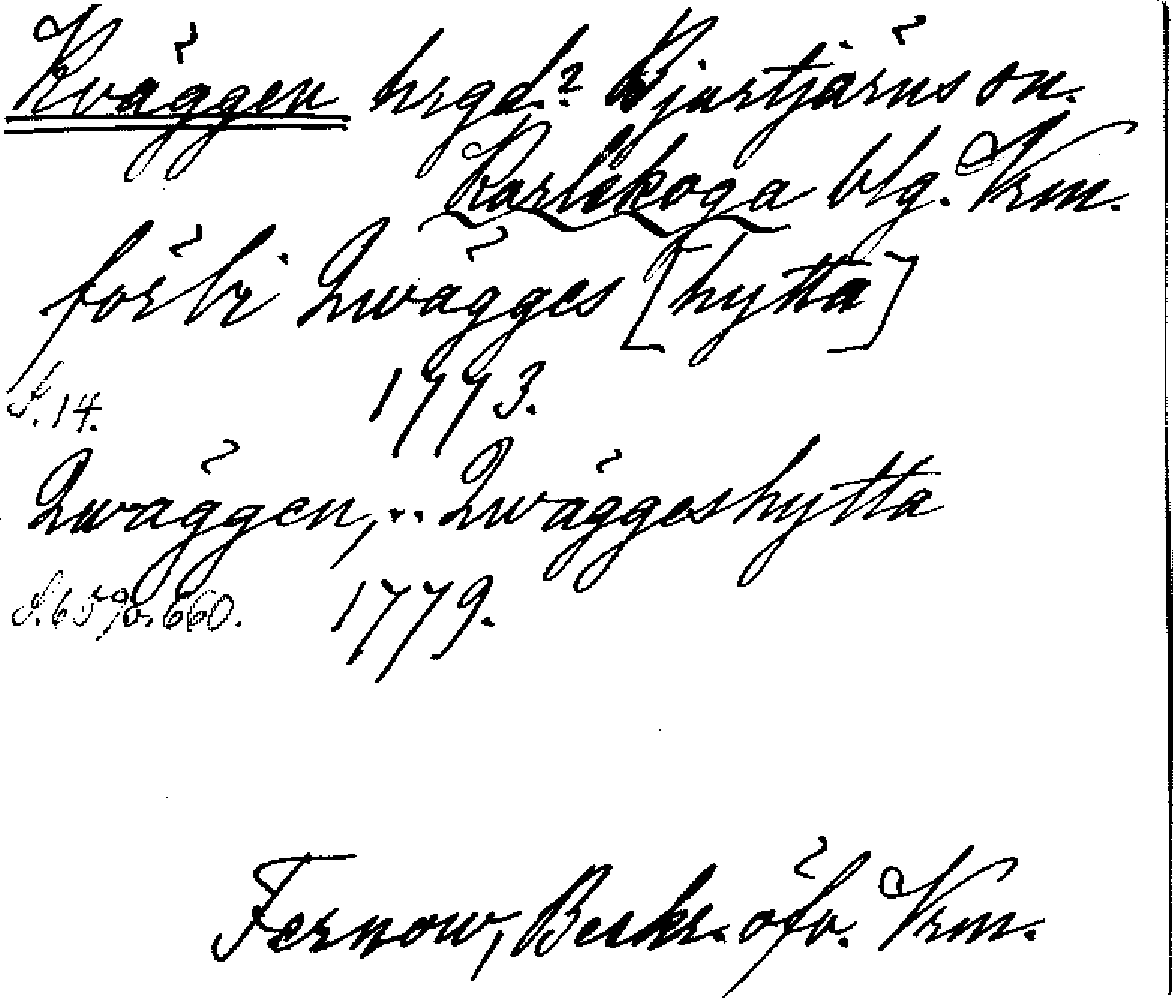 Kväggen hrgd? Bjurtjärns sn.
Karlskoga blg. Vrm.
förbi Qwägges [hytta]
S. 14. 1773.
Qwäggen, .. Qwäggeshytta
S. 659 o. 660. 1779.
Fernow, Beskr. öfv. Vrm.